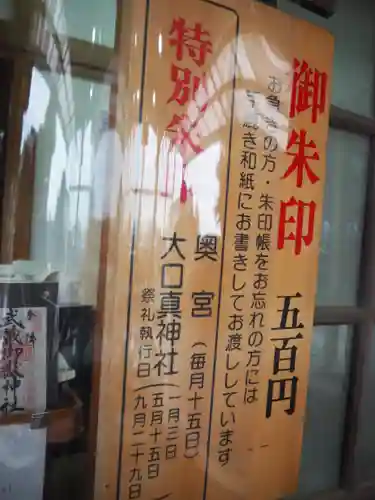 御朱印 五百円
お急ぎの方・朱印帳をお忘れの方には
手漉き和紙にお書きしてお渡ししています
特別朱印
奥宮（毎月十五日）
大口真神社
祭礼執行日
一月三日
五月十五日
九月二十九日
武蔵御嶽神社